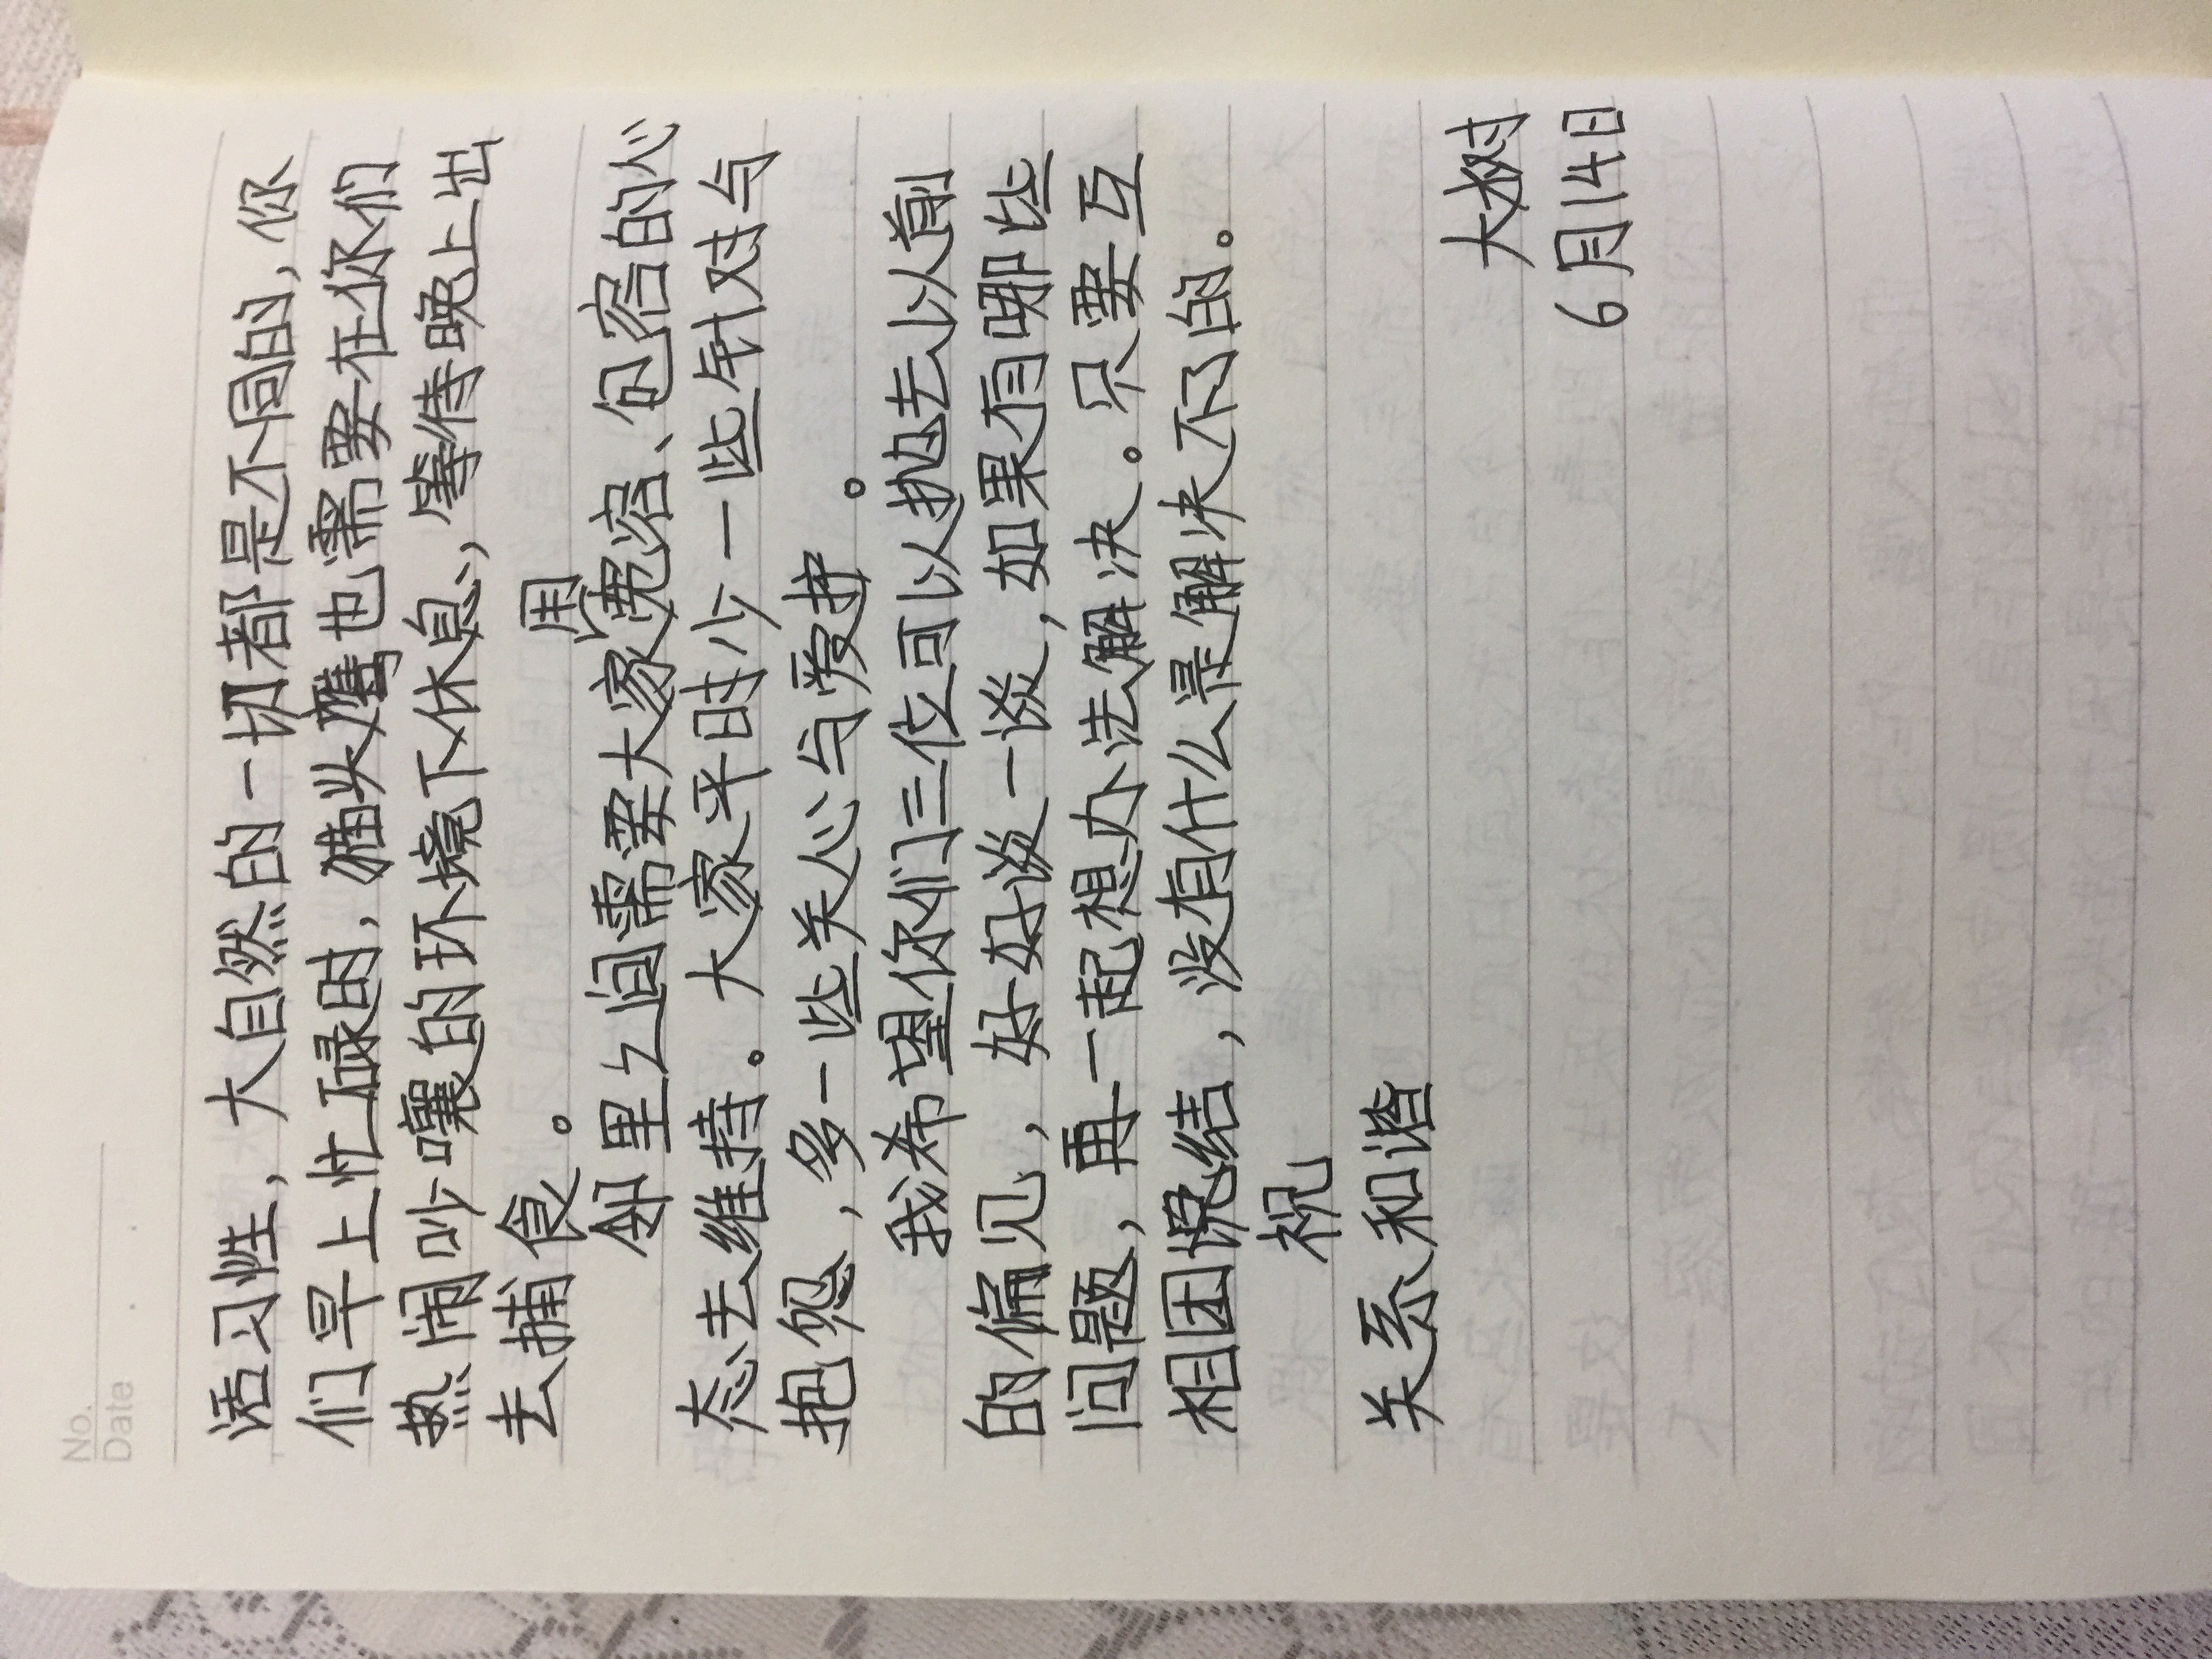 No.
Date
活习性，大自然的一切都是不同的，你
们早上忙碌时，猫头鹰也需要在你们
热闹吵嚷的环境下休息，等待晚上出
去捕食。
邻里之间需要大家用宽容、包容的心
态去维持。大家平时少一些针对与
抱怨，多一些关心与爱护。
我希望你们三位可以抛去以前
的偏见，好好谈一谈，如果有哪些
问题，再一起想办法解决。只要互
相团结，没有什么是解决不了的。
祝
关系和谐
大树
6月14日